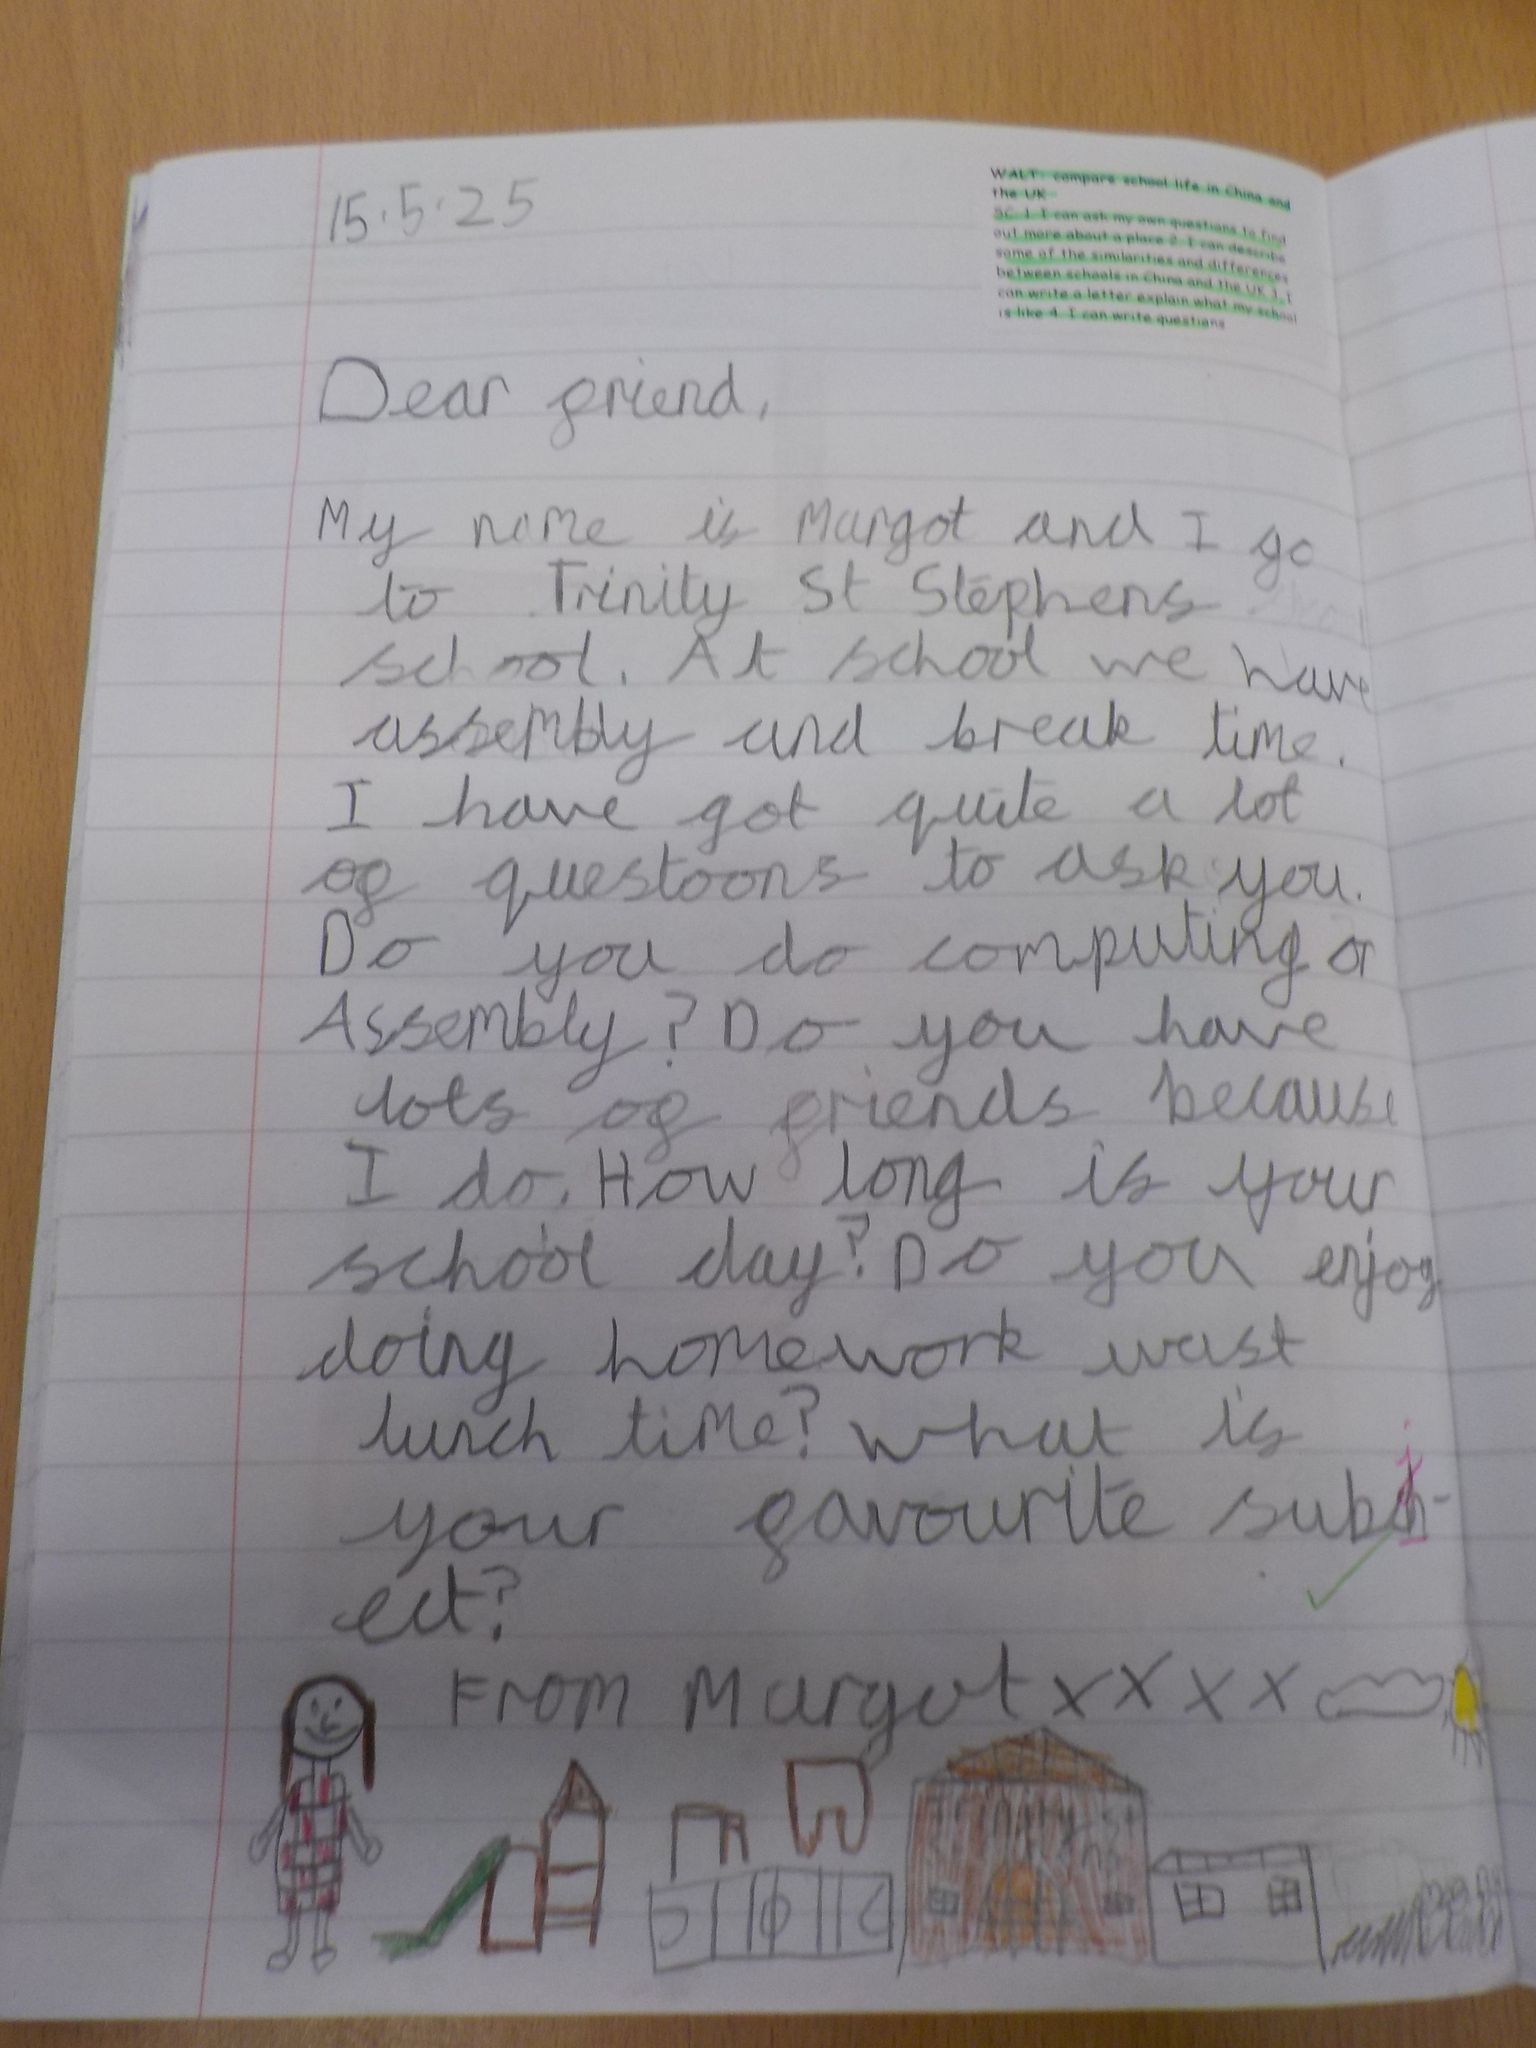 15.5.25
WALT: compare school life in China and
the UK
SC 1. I can ask my own questions to find
out more about a place 2. I can describe
some of the similarities and differences
between schools in China and the UK 3. I
can write a letter explain what my school
is like 4. I can write questions
Dear friend,
My name is Margot and I go
to Trinity St Stephens
school. At school we have
assembly and break time.
I have got quite a lot
of questoons to ask you.
Do you do computing or
Assembly? Do you have
lots of friends because
I do. How long is your
school day? Do you enjoy
doing homework wast
lunch time? what is
your favourite subj-
ect?
From Margot xxxx
Trinity St